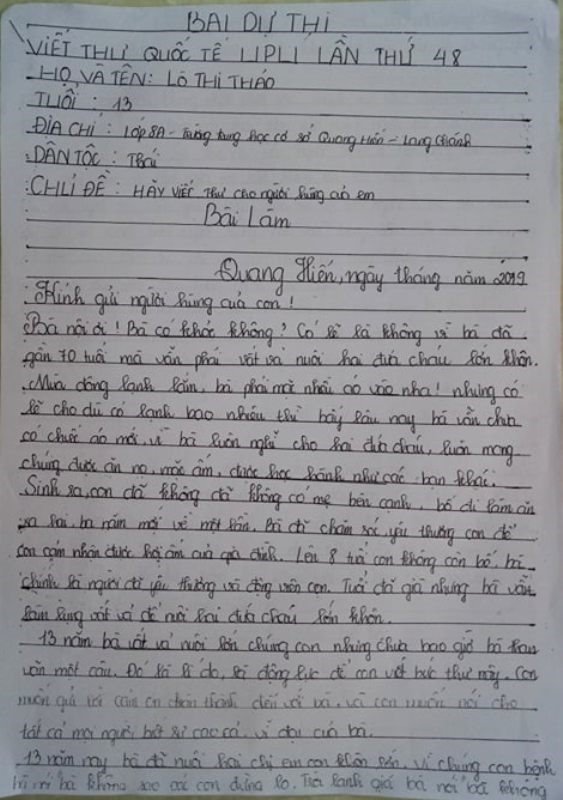 BÀI DỰ THI
VIẾT THƯ QUỐC TẾ UPU LẦN THỨ 48
HỌ VÀ TÊN: LÒ THỊ THẢO
TUỔI : 13
ĐỊA CHỈ : Lớp 8A - Trường trung học cơ sở Quang Hiến - Lang Chánh
DÂN TỘC : Thái
CHỦ ĐỀ : HÃY VIẾT THƯ cho người hùng của em
Bài Làm
Quang Hiến, ngày tháng năm 2019
Kính gửi người hùng của con !
Bà nội ơi ! Bà có khỏe không ? Có lẽ là không vì bà đã
gần 70 tuổi mà vẫn phải vất vả nuôi hai đứa cháu lớn khôn.
Mùa đông lạnh lắm, bà phải mặc nhiều áo vào nha ! nhưng có
lẽ cho dù có lạnh bao nhiêu thì bấy lâu nay bà vẫn chưa
có chiếc áo mới, vì bà luôn nghĩ cho hai đứa cháu, luôn mong
chúng được ăn no, mặc ấm, được học hành như các bạn khác.
Sinh ra, con đã không đã không có mẹ bên cạnh, bố đi làm ăn
xa hai, ba năm mới về một lần. Bà đã chăm sóc, yêu thương con để
con cảm nhận được hơi ấm của gia đình. Lên 8 tuổi con không còn bố, bà
chính là người đã yêu thương và động viên con. Tuổi đã già nhưng bà vẫn
làm lụng vất vả để nuôi hai đứa cháu lớn khôn.
13 năm bà vất vả nuôi lớn chúng con nhưng chưa bao giờ bà than
vãn một câu. Đó là lí do, là động lực để con viết bức thư này. Con
muốn gửi lời cảm ơn chân thành đến với bà, và con muốn nói cho
tất cả mọi người biết sự cao cả, vĩ đại của bà.
13 năm nay bà đã nuôi hai chị em con khôn lớn, vì chúng con bệnh
bà nói bà không sao các con đừng lo. Trời lạnh giá bà nói bà không